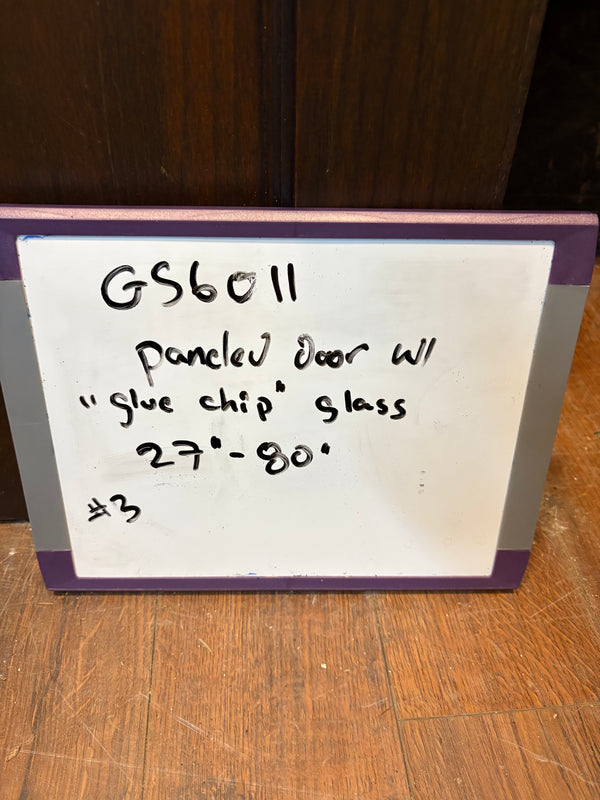 GS6011
paneled door w/
"glue chip" glass
27" - 80"
#3